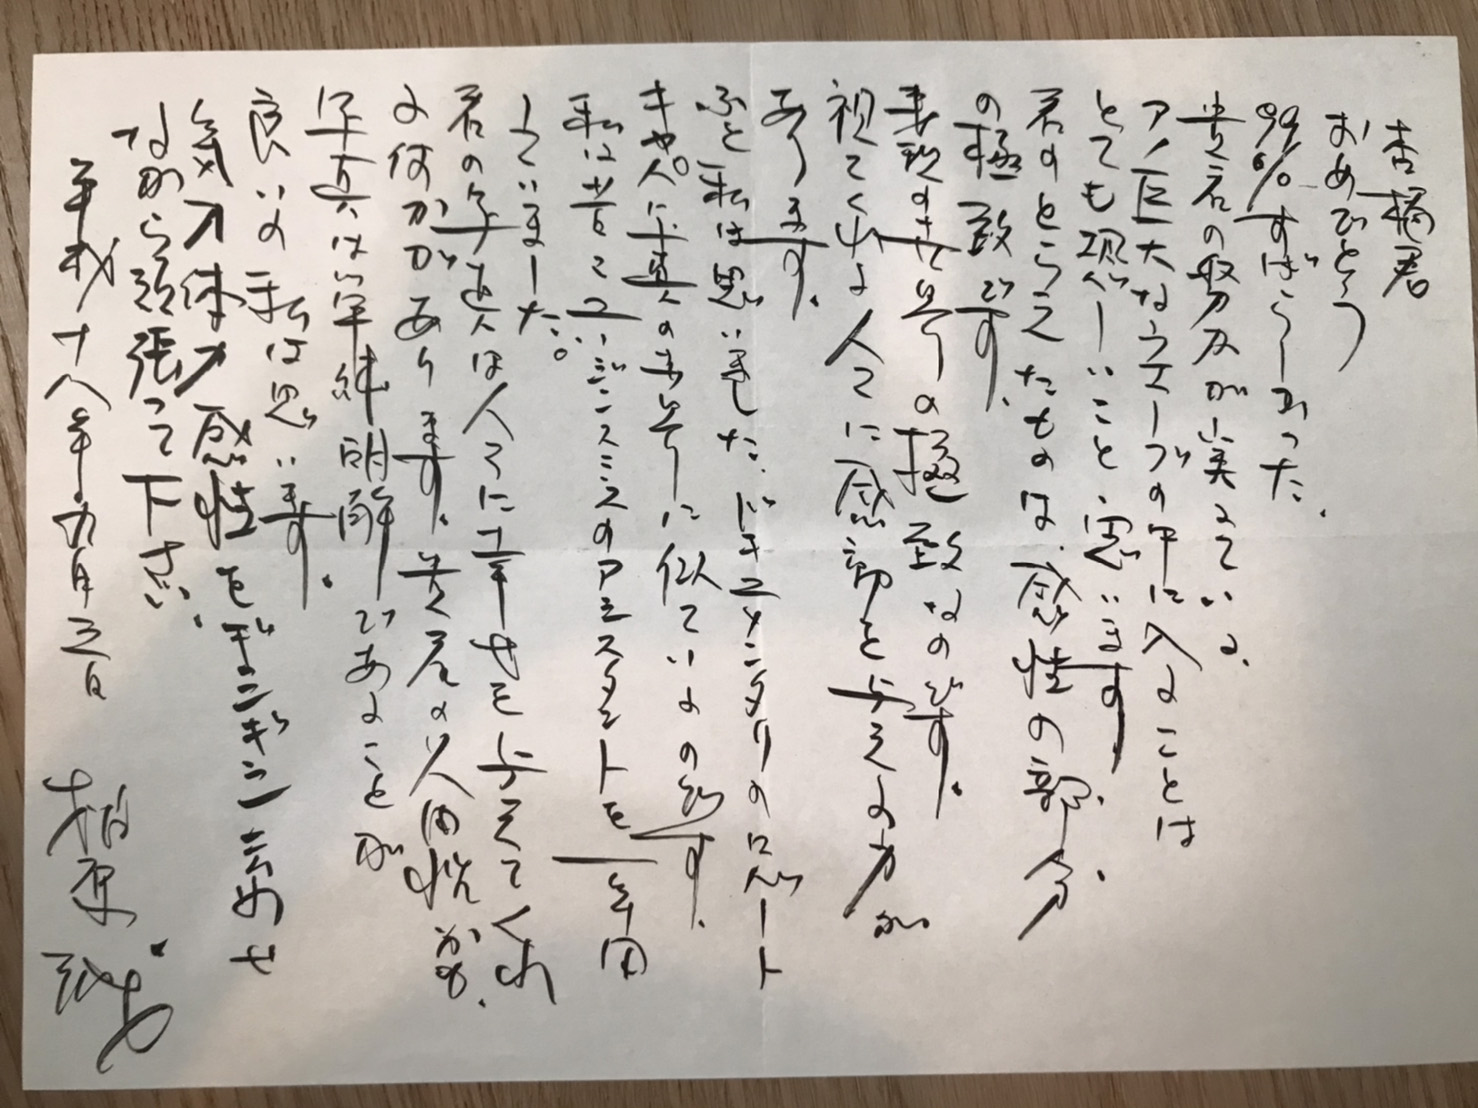 杏橘君
おめでとう
99%すばらしかった。
貴君の努力が実っている。
アノ巨大なウエーブの中に入ることは
とても恐ーいこと、思います。
君のとらえたものは、感性の部分、
の極致です。
表現の世界の極致なのです。
視てくれる人々に感動を与える力が
あります。
ふと私は思いました、ドキュメンタリのロバート
キャパに写真の世界に似ているのです。
私は昔でユージンスミスのアシスタントを一年間
していました。
君の写真は人々に幸せを与えてくれ
る何かがあります。貴君の人間性かな、
写真は単純明解であることが
良いの私は思います。
気力体力感性をギンギン言わせ
ながら頑張って下さい、
平成十八年九月三日